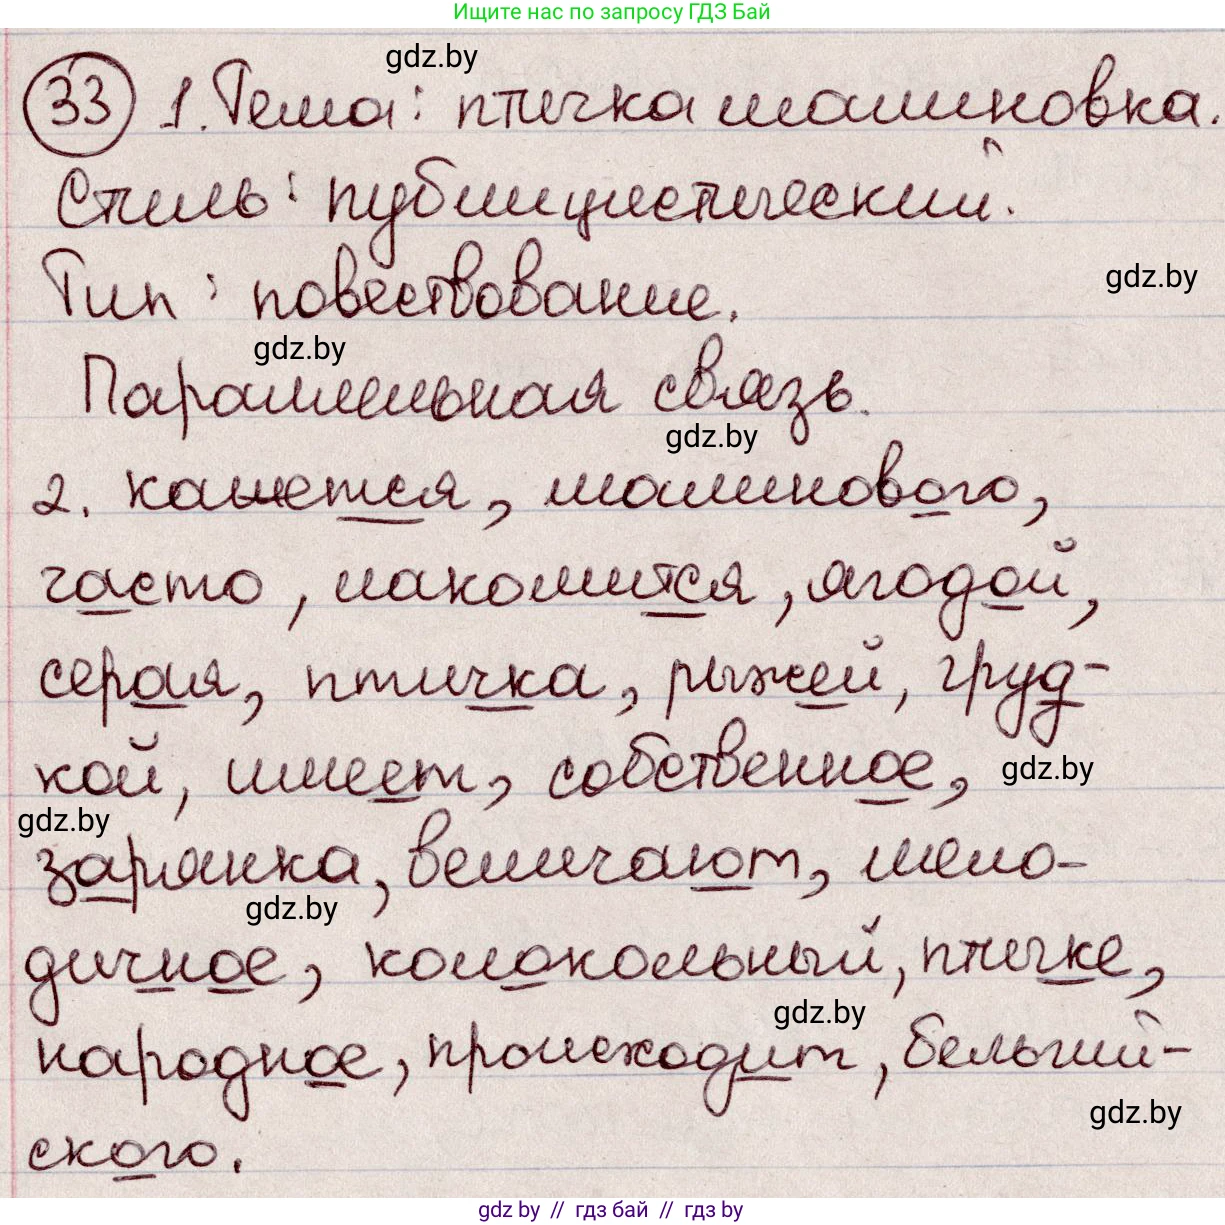 Ищите нас по запросу ГДЗ Бай
gdz.by
33 1. Тема: птичка малиновка.
Стиль: публицистический.
gdz.by
Тип: повествование.
gdz.by
Параллельная связь.
gdz.by
2. кажется, малинового,
часто, лакомится, ягодой,
серая, птичка, рыжей, груд-
кой, имеет, собственное,
gdz.by
gdz.by
зарянка, величают, мело-
gdz.by
дичное, колокольный, птичке,
gdz.by
народное, происходит, бельгий-
gdz.by
ского.
gdz.by // гдз бай // гдз by